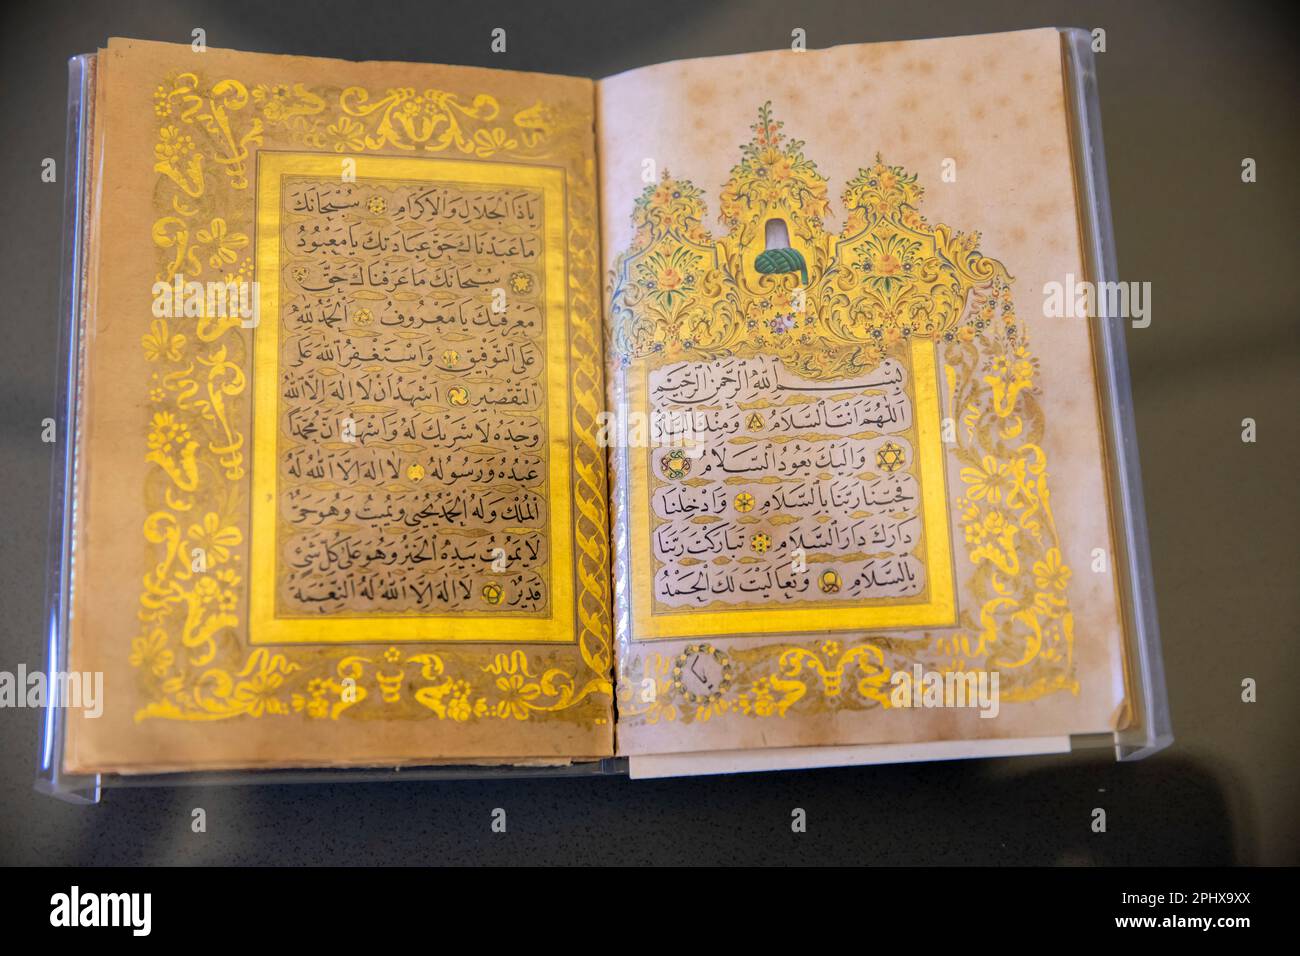 بسم الله الرحمن الرحيم
اللهم انت السلام ومنك السلام
واليك يعود السلام
فحينا ربنا بالسلام وادخلنا
دارك دار السلام تباركت ربنا
بالسلام وتعاليت لك الحمد
ياذا الجلال والاكرام سبحانك
ما عبدناك حق عبادتك يا معبود
سبحانك ما عرفناك حق
معرفتك يا معروف الحمد لله
على التوفيق واستغفر الله على
التقصير اشهد ان لا اله الا الله
وحده لا شريك له واشهد ان محمدا
عبده ورسوله لا اله الا الله له
الملك وله الحمد يحيى ويميت وهو حى
لا يموت بيده الخير وهو على كل شئ
قدير لا اله الا الله له النعمة
alamy
Image ID: 2PHX9XX
www.alamy.com